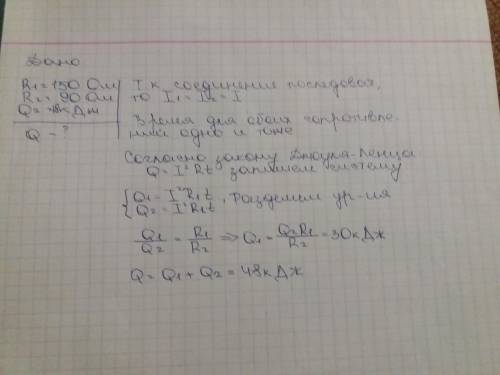 Дано
R1 = 150 Ом
R2 = 90 Ом
Q2 = 18кДж
Q - ?
Т.к. соединение последоват,
то I1 = I2 = I
Время для обоих сопротивле-
ний одно и тоже
Согласно закону Джоуля-Ленца
Q = I²Rt запишем систему
{Q1 = I²R1t
{Q2 = I²R2t , Разделим ур-ия
Q1/Q2 = R1/R2 => Q1 = Q2R1/R2 = 30кДж
Q = Q1 + Q2 = 48кДж